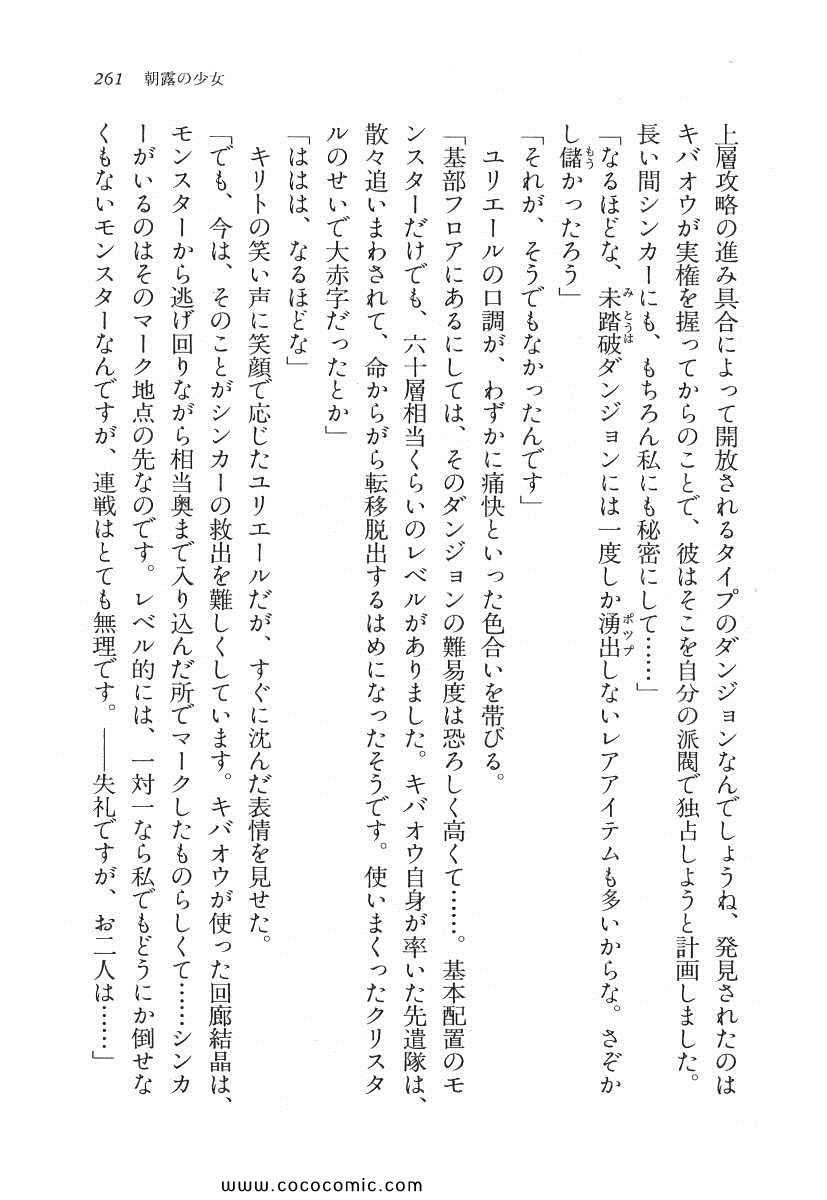 261　朝露の少女
上層攻略の進み具合によって開放されるタイプのダンジョンなんでしょうね、発見されたのは
キバオウが実権を握ってからのことで、彼はそこを自分の派閥で独占しようと計画しました。
長い間シンカーにも、もちろん私にも秘密にして……」
「なるほどな、未踏破ダンジョンには一度しか湧出しないレアアイテムも多いからな。さぞか
し儲かったろう」
「それが、そうでもなかったんです」
　ユリエールの口調が、わずかに痛快といった色合いを帯びる。
「基部フロアにあるにしては、そのダンジョンの難易度は恐ろしく高くて……。基本配置のモ
ンスターだけでも、六十層相当くらいのレベルがありました。キバオウ自身が率いた先遣隊は、
散々追いまわされて、命からがら転移脱出するはめになったそうです。使いまくったクリスタ
ルのせいで大赤字だったとか」
「ははは、なるほどな」
　キリトの笑い声に笑顔で応じたユリエールだが、すぐに沈んだ表情を見せた。
「でも、今は、そのことがシンカーの救出を難しくしています。キバオウが使った回廊結晶は、
モンスターから逃げ回りながら相当奥まで入り込んだ所でマークしたものらしくて……シンカ
ーがいるのはそのマーク地点の先なのです。レベル的には、一対一なら私でもどうにか倒せな
くもないモンスターなんですが、連戦はとても無理です。――失礼ですが、お二人は……」
www.cococomic.com